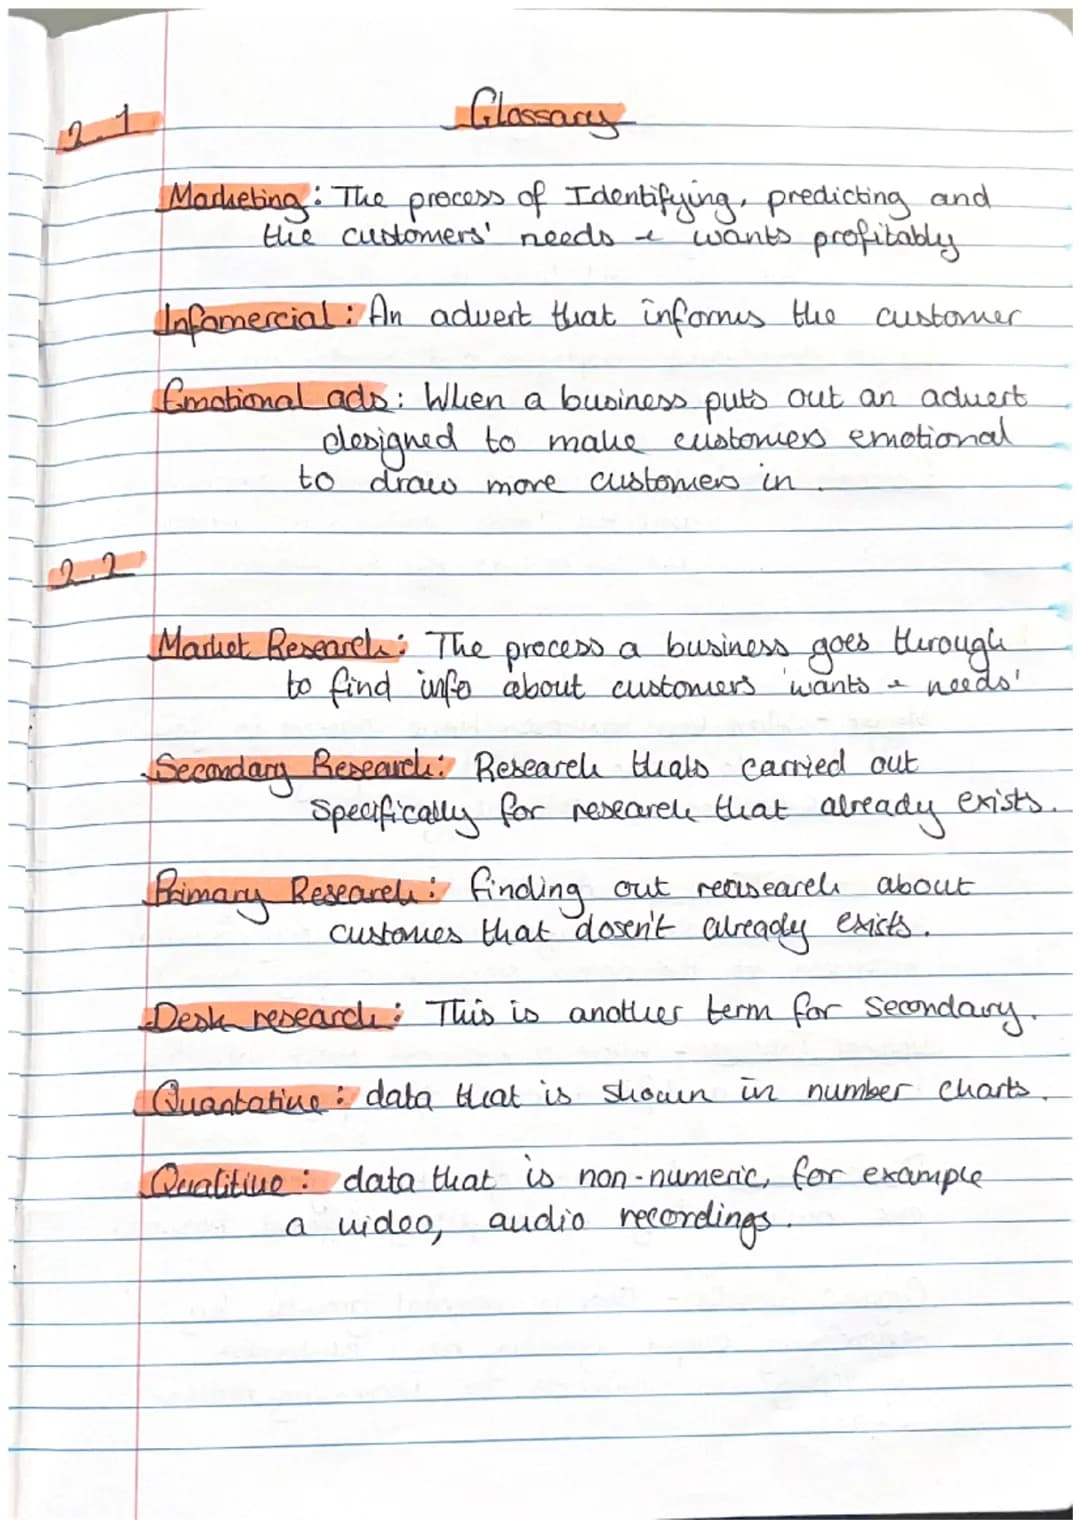 Glossary
2.1
Marketing: The process of Identifying, predicting and
the customers' needs & wants profitably
Infomercial: An advert that informs the customer
Emotional ads: When a business puts out an advert
designed to make customers emotional
to draw more customers in.
2.2
Market Research: The process a business goes through
to find info about customers 'wants & needs'
Secondary Research: Research thats carried out
Specifically for research that already exists.
Primary Research: finding out reasearch about
customes that dosen't already exists.
Desk research: This is another term for Secondary.
Quantative: data that is shown in number charts.
Qualitive: data that is non-numeric, for example
a video, audio recordings.